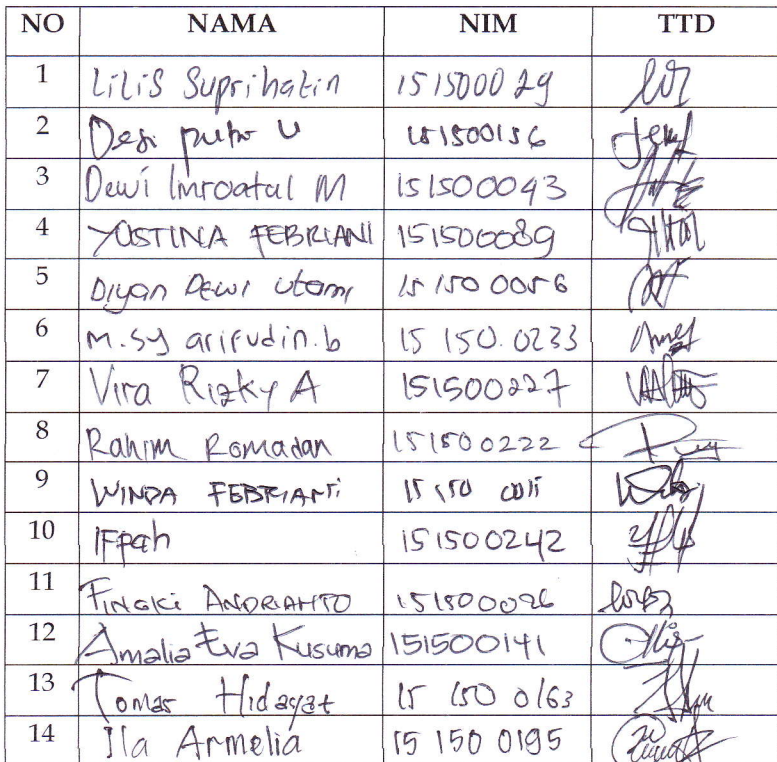 NO NAMA NIM TTD
1 Lilis Suprihatin 151500029
2 Desi putri U 151500156
3 Dewi Imroatul M 151500043
4 YOSTINA FEBRIANI 151500089
5 Diyan Dewi Utami 15 150 0056
6 M.Sy arifudin.b 15 150.0233
7 Vira Rizky A 151500227
8 Rahim Romadan 151500222
9 WINDA FEBRIANTI 15 150
10 Iffah 151500242
11 FINGKI ANDRIANTO 151500026
12 Amalia Eva Kusuma 151500141
13 Tomas Hidayat 15 150 0163
14 Ila Armelia 15 150 0195